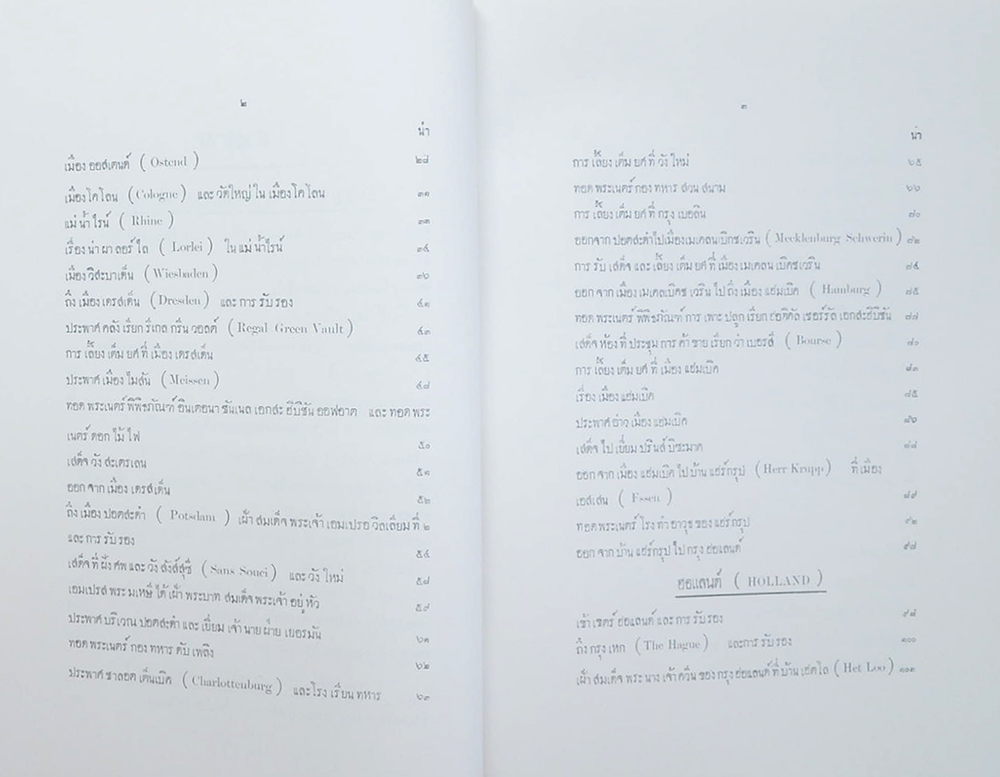 ๒
น่า
เมือง ออสเตนด์ ( Ostend ) ๒๘
เมืองโคโลน ( Cologne ) และ วัดใหญ่ ใน เมืองโคโลน ๓๑
แม่น้ำไรน์ ( Rhine ) ๓๓
เรื่อง น่า ผา ลอร์ ไล ( Lorlei ) ใน แม่ น้ำไรน์ ๓๔
เมือง วีสะบาเด็น ( Wiesbaden ) ๓๖
ถึง เมือง เดรสเด็น ( Dresden ) และ การ รับ รอง ๔๑
ประพาศ คลัง เรียก รีเกล กรีน วอลต์ ( Regal Green Vault ) ๔๓
การ เลี้ยง เต็ม ยศ ที่ เมือง เดรสเด็น ๔๕
ประพาศ เมือง ไมสัน ( Meissen ) ๔๘
ทอด พระเนตร์ พิพิธภัณฑ์ อินเตอนา ชันเนล เอกสะ ฮิบิชัน ออฟอาต และ ทอด พระ
เนตร์ ดอก ไม้ ไฟ ๕๐
เสด็จ วัง สะเตรเลน ๕๑
ออก จาก เมือง เดรสเด็น ๕๒
ถึง เมือง ปอดสะดำ ( Potsdam ) เฝ้า สมเด็จ พระเจ้า เอมเปรอ วิลเลียม ที่ ๒
และ การ รับ รอง ๕๔
เสด็จ ที่ ฝัง ศพ และ วัง สังส์สุซี ( Sans Souci ) และ วัง ใหม่ ๕๘
เอมเปรส พระ มเหษี ได้ เฝ้า พระบาท สมเด็จ พระเจ้า อยู่ หัว ๕๙
ประพาศ บริเวณ ปอดสะดำ และ เยี่ยม เจ้า นาย ฝ่าย เยอรมัน ๖๑
ทอด พระเนตร์ กอง ทหาร ดับ เพลิง ๖๒
ประพาศ ชาลอต เต็นเบิค ( Charlottenburg ) และ โรง เรียน ทหาร ๖๓
๓
น่า
การ เลี้ยง เต็ม ยศ ที่ วัง ใหม่ ๖๕
ทอด พระเนตร์ กอง ทหาร สวน สนาม ๖๖
การ เลี้ยง เต็ม ยศ ที่ กรุง เบอลิน ๗๐
ออกจาก ปอดสะดำ ไป เมืองเมเคลนเบิกชเวริน ( Mecklenburg Schwerin ) ๗๒
การ รับ เสด็จ และ เลี้ยง เต็ม ยศ ที่ เมือง เมเคลน เบิคชเวริน ๗๔
ออก จาก เมือง เมเคลเบิคช เวริน ไป ถึง เมือง แฮมเบิค ( Hamburg ) ๗๕
ทอด พระเนตร์ พิพิธภัณฑ์ การ เพาะ ปลูก เรียก ฮอติคัล เชอร์รัล เอกสะฮิบิชัน ๗๗
เสด็จ ห้อง ที่ ประชุม การ ค้า ขาย เรียก ว่า เบอรส์ ( Bourse ) ๘๐
การ เลี้ยง เต็ม ยศ ที่ เมือง แฮมเบิค ๘๓
เรื่อง เมือง แฮมเบิค ๘๕
ประพาศ อ่าว เมือง แฮมเบิค ๘๖
เสด็จ ไป เยี่ยม ปรินส์ บิซะมาค ๘๘
ออก จาก เมือง แฮมเบิค ไป บ้าน แฮร์กรุป ( Herr Krupp ) ที่ เมือง
เอสเสน ( Essen ) ๘๙
ทอด พระเนตร์ โรง ทำ อาวุธ ของ แฮร์กรุป ๙๒
ออก จาก บ้าน แฮร์กรุป ไป กรุง ฮอแลนด์ ๙๗
ฮอแลนด์ ( HOLLAND )
เข้า เขตร์ ฮอแลนด์ และ การ รับ รอง ๙๘
ถึง กรุง เหก ( The Hague ) และการ รับ รอง ๑๐๐
เฝ้า สมเด็จ พระ นาง เจ้า ควีน ของ กรุง ฮอแลนด์ ที่ บ้าน เฮตโล ( Het Loo ) ๑๐๑